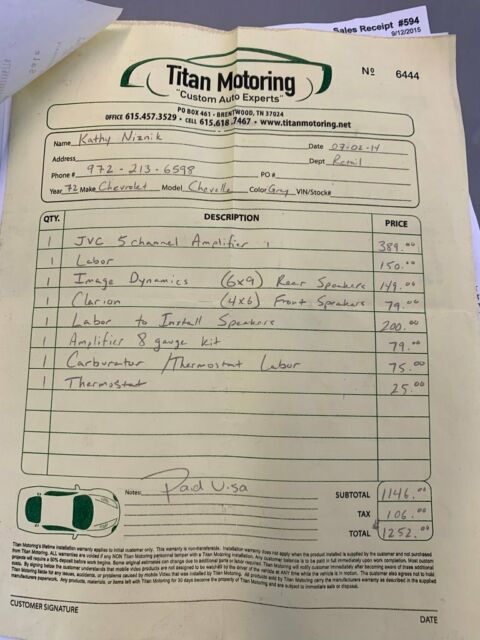 Sales Receipt #594
9/12/2015
Titan Motoring
"Custom Auto Experts"
No 6444
PO BOX 461 • BRENTWOOD, TN 37024
OFFICE 615.457.3529 • CELL 615.618.7467 • www.titanmotoring.net
Name Kathy Niznik Date 07-02-14
Address Dept Retail
Phone # 972-213-6598 PO #
Year 72 Make Chevrolet Model Chevelle Color Gray VIN/Stock#
QTY. DESCRIPTION PRICE
1 JVC 5 channel Amplifier 389.00
1 Labor 150.00
1 Image Dynamics (6x9) Rear Speakers 149.00
1 Clarion (4x6) Front Speakers 79.00
1 Labor to Install Speakers 200.00
1 Amplifier 8 gauge kit 79.00
1 Carburator / Thermostat Labor 75.00
1 Thermostat 25.00
Notes: Paid Visa
SUBTOTAL 1146.00
TAX 106.00
TOTAL 1252.00
Titan Motoring's lifetime installation warranty applies to initial customer only. This warranty is non-transferable. Installation warranty does not apply when the product installed is supplied by the customer and not purchased
from Titan Motoring. ALL warranties are voided if any NON Titan Motoring personnel tamper with a Titan Motoring installation. Any customer balance is to be paid in full immediately upon work completed. Most custom
projects will require a 60% deposit before work begins. Some original estimates can change due to additional parts or labor required. Titan Motoring will notify customer immediately after becoming aware of these additional
costs. By signing below the customer understands that mobile video products are not designed to be watched by the driver of the vehicle at ANY time while the vehicle is in motion. The customer also agrees not to hold
Titan Motoring liable for any issues, accidents, or problems caused by mobile Video that was installed by Titan Motoring. All products sold by Titan Motoring carry the manufacturers warranty as described in the supplied
manufacturers paperwork. Any products, materials, or items left with Titan Motoring for 30 days become the property of Titan Motoring and are subject to immediate sale or disposal.
CUSTOMER SIGNATURE DATE